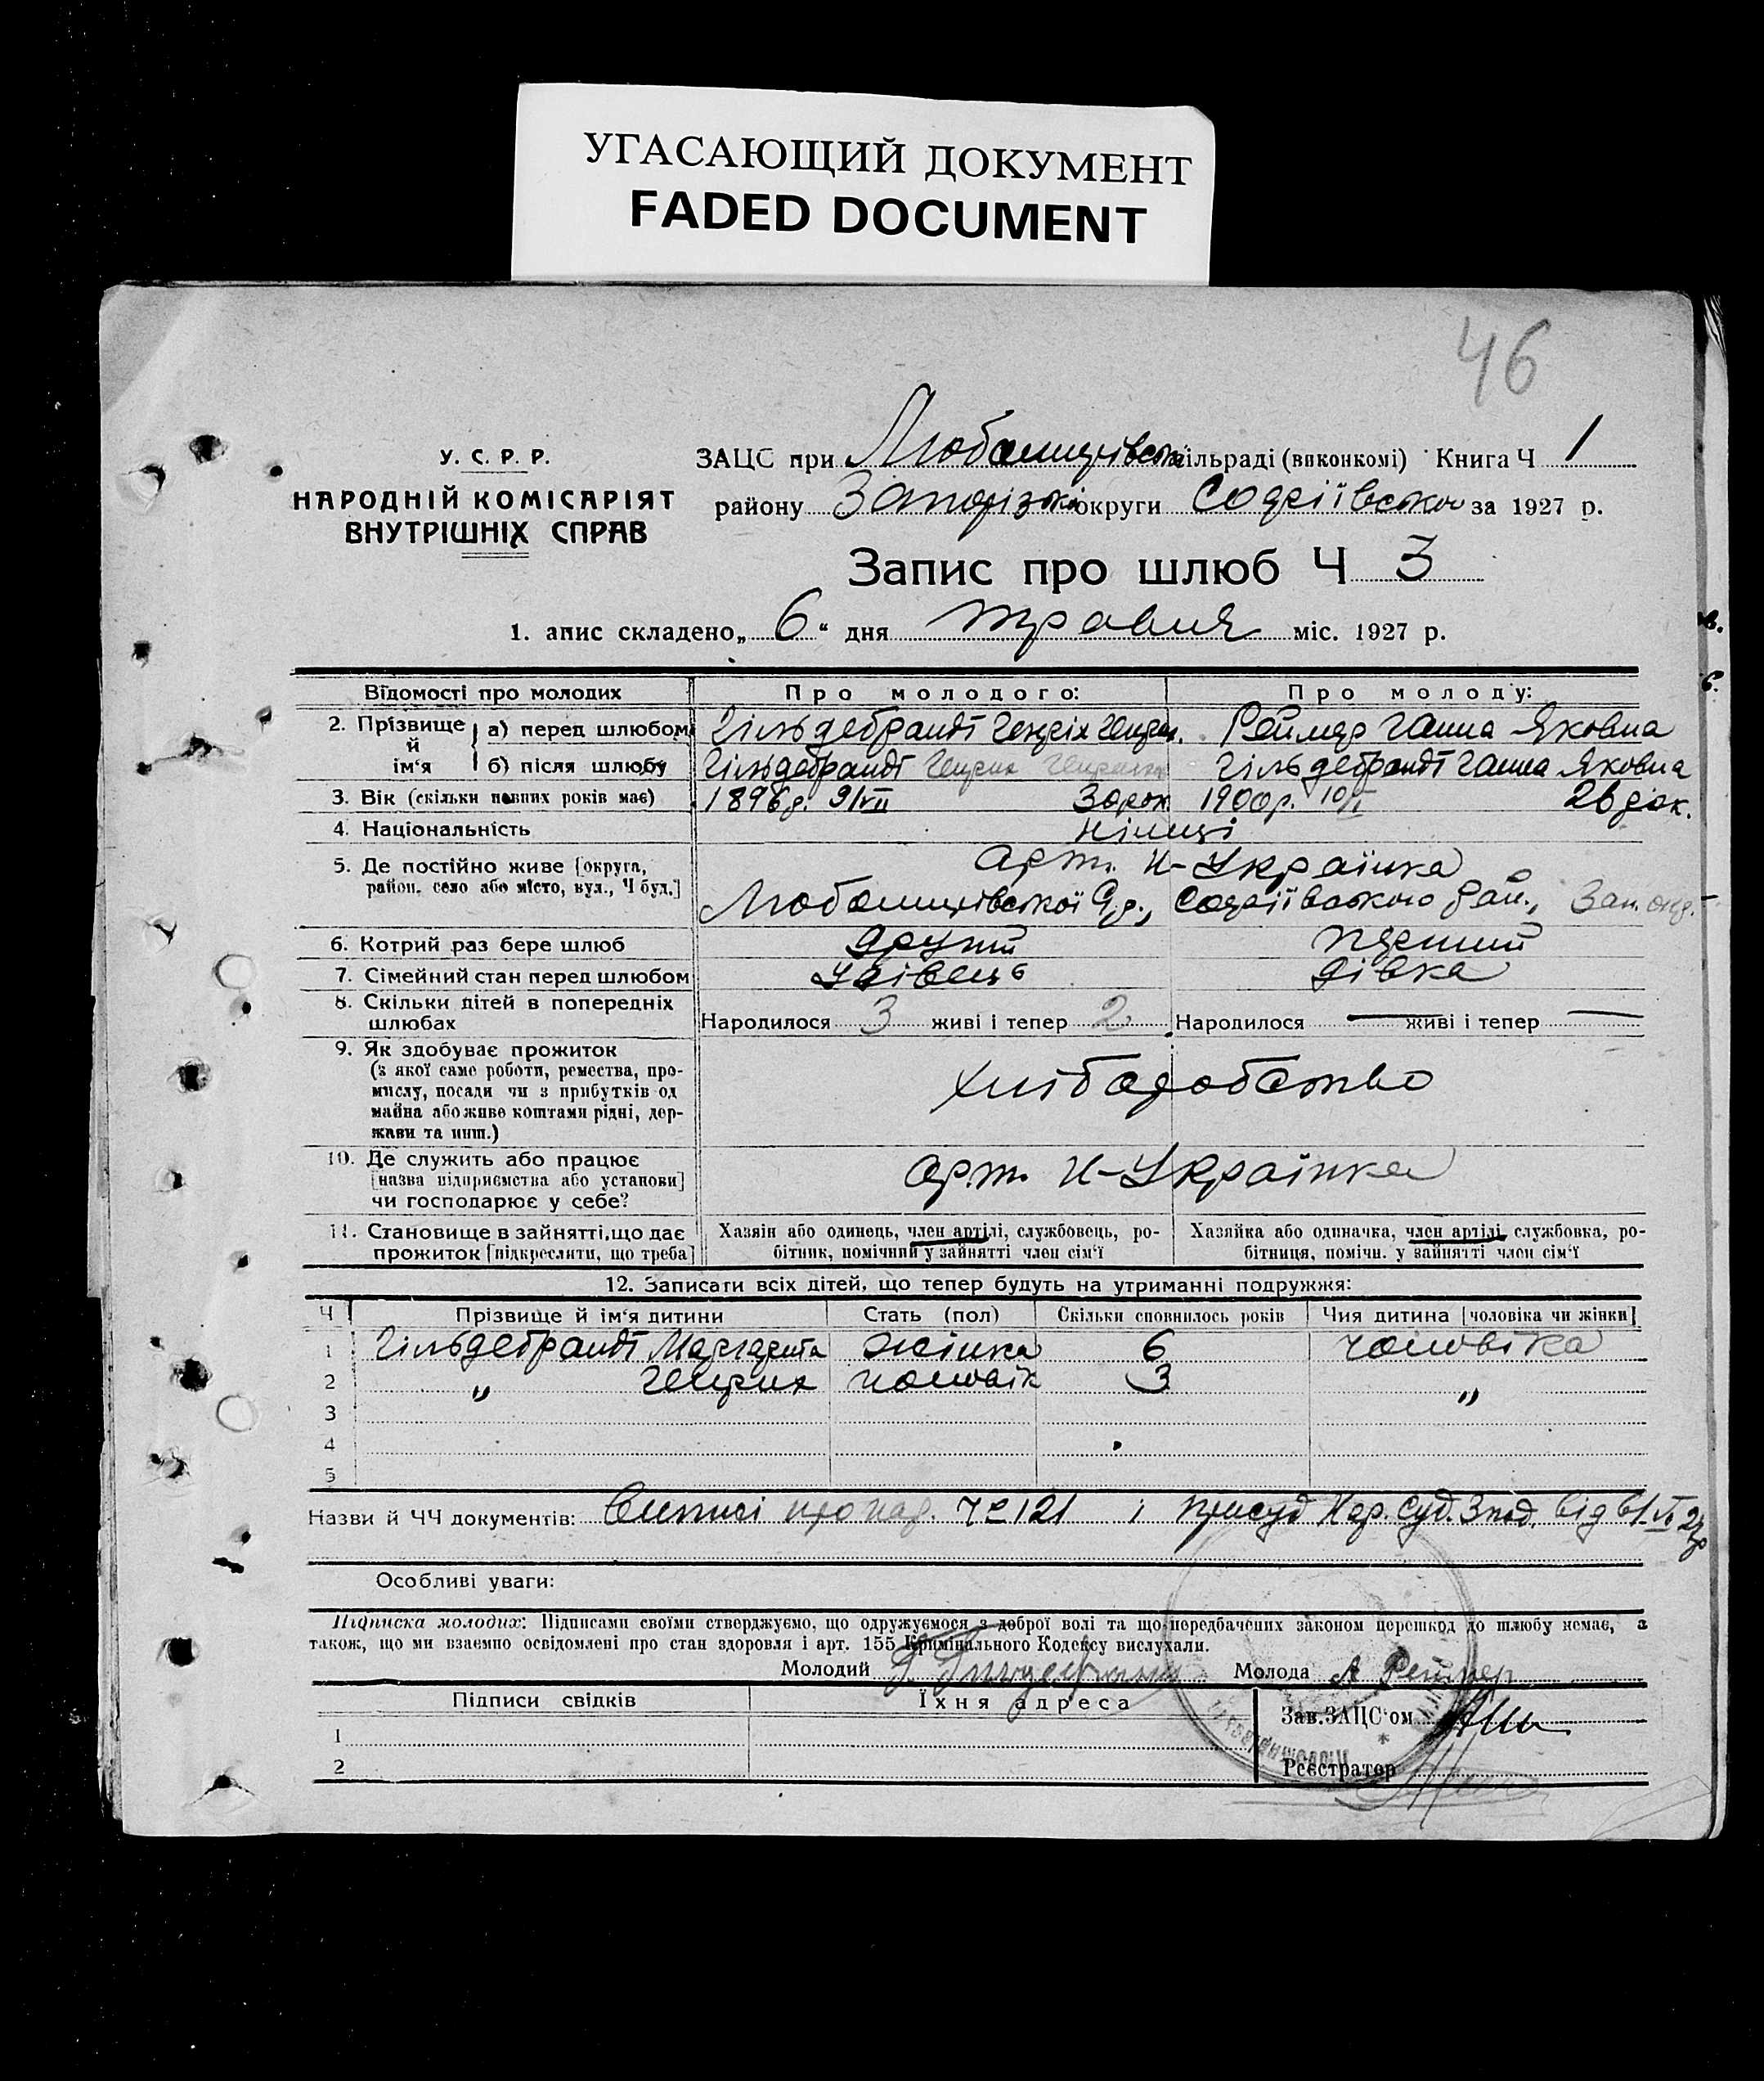 УГАСАЮЩИЙ ДОКУМЕНТ
FADED DOCUMENT
46
У. С. Р. Р.
НАРОДНІЙ КОМІСАРІЯТ
ВНУТРІШНІХ СПРАВ
ЗАЦС при Любомирівськ ільраді (виконкомі) Книга Ч 1
району Запоріжжі округи Софіївсько за 1927 р.
Запис про шлюб Ч 3
1. апис складено „ 6 “ дня травня міс. 1927 р.
Відомості про молодих Про молодого: Про молоду:
2. Прізвище й ім‘я
а) перед шлюбом Гільдебрандт Генріх Генрих. Реймер Ганна Яковна
б) після шлюбу Гільдебрандт Генрих Генрихов Гільдебрандт Ганна Яковна
3. Вік (скільки повних років має) 1896р. 9/VII 30 рок 1900р. 10/I 26 рок.
4. Національність німці
5. Де постійно живе [округа, район, село або місто, вул., Ч буд.]
арт. Н-Українка
Любомирівської С.р., Софіївського рай., Зап. окр.
6. Котрий раз бере шлюб другий перший
7. Сімейний стан перед шлюбом удівець дівка
8. Скільки дітей в попередніх шлюбах Народилося 3 живі і тепер 2 Народилося — живі і тепер —
9. Як здобуває прожиток
(з якої само роботи, ремества, про-
мислу, посади чи з прибутків од
майна або живе коштами рідні, дер-
жави та инш.)
хліборобство
10. Де служить або працює
[назва підприємства або установи]
чи господарює у себе?
арт. Н-Українка
11. Становище в зайнятті, що дає
прожиток [підкреслити, що треба]
Хазяін або одинець, член артілі, службовець, ро-
бітник, помічний у зайнятті член сім‘ї
Хазяйка або одиначка, член артілі, службовка, ро-
бітниця, помічн. у зайнятті член сім‘ї
12. Записати всіх дітей, що тепер будуть на утриманні подружжя:
Ч Прізвище й ім‘я дитини Стать (пол) Скільки сповнилось років Чия дитина [чоловіка чи жінки]
1 Гільдебрандт Маргарита жінка 6 чоловіка
2 „ Генрих чоловік 3 „
3
4
5
Назви й ЧЧ документів: Виписі про нар. Ч 121 і присуд Нар. Суд. від
Особливі уваги:
Підписка молодих: Підписами своїми стверджуємо, що одружуємося з доброї волі та що передбачених законом перешкод до шлюбу немає, а
також, що ми взаємно освідомлені про стан здоровля і арт. 155 Кримінального Кодексу вислухали.
Молодий Г Гильдебрандт Молода А Реймер
Підписи свідків Їхня адреса Зав. ЗАЦС‘ом
1
2 Реєстратор